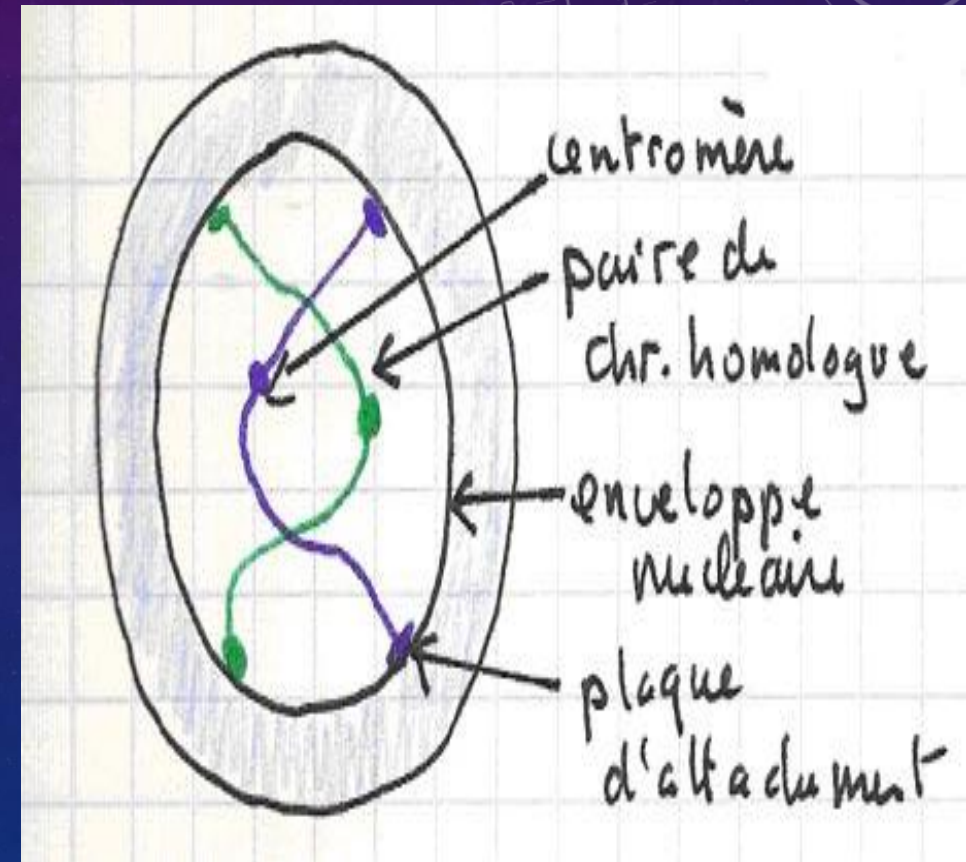 centromère
paire de
chr. homologue
enveloppe
nucléaire
plaque
d'attachement